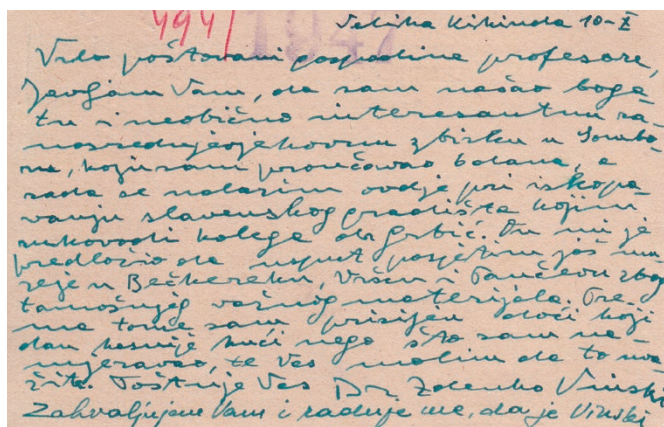 4941
Velika Kikinda 10-X
Vrlo poštovani gospodine profesore,
Javljam Vam, da sam našao boga
tu i neobično interesantnu ra
nosrednjovjekovnu zbirku u Sombo
ru, koju sam proučavao 6 dana, a
sada se nalazim ovdje pri iskopa
vanju slavenskog gradišta kojim
rukovodi kolega dr Grbić. On mi je
predložio da usput posjetim još mu
zeje u Bečkereku, Vršcu i Pančevu zbog
tamošnjeg važnog materijala. Pre
ma tome sam prisiljen doći koji
dan kasnije kući nego što sam na
mjeravao, te Vas molim da to uva
žite. Poštuje Vas Dr. Zdenko Vinski
Zahvaljujem Vam i raduje me, da je Vinski